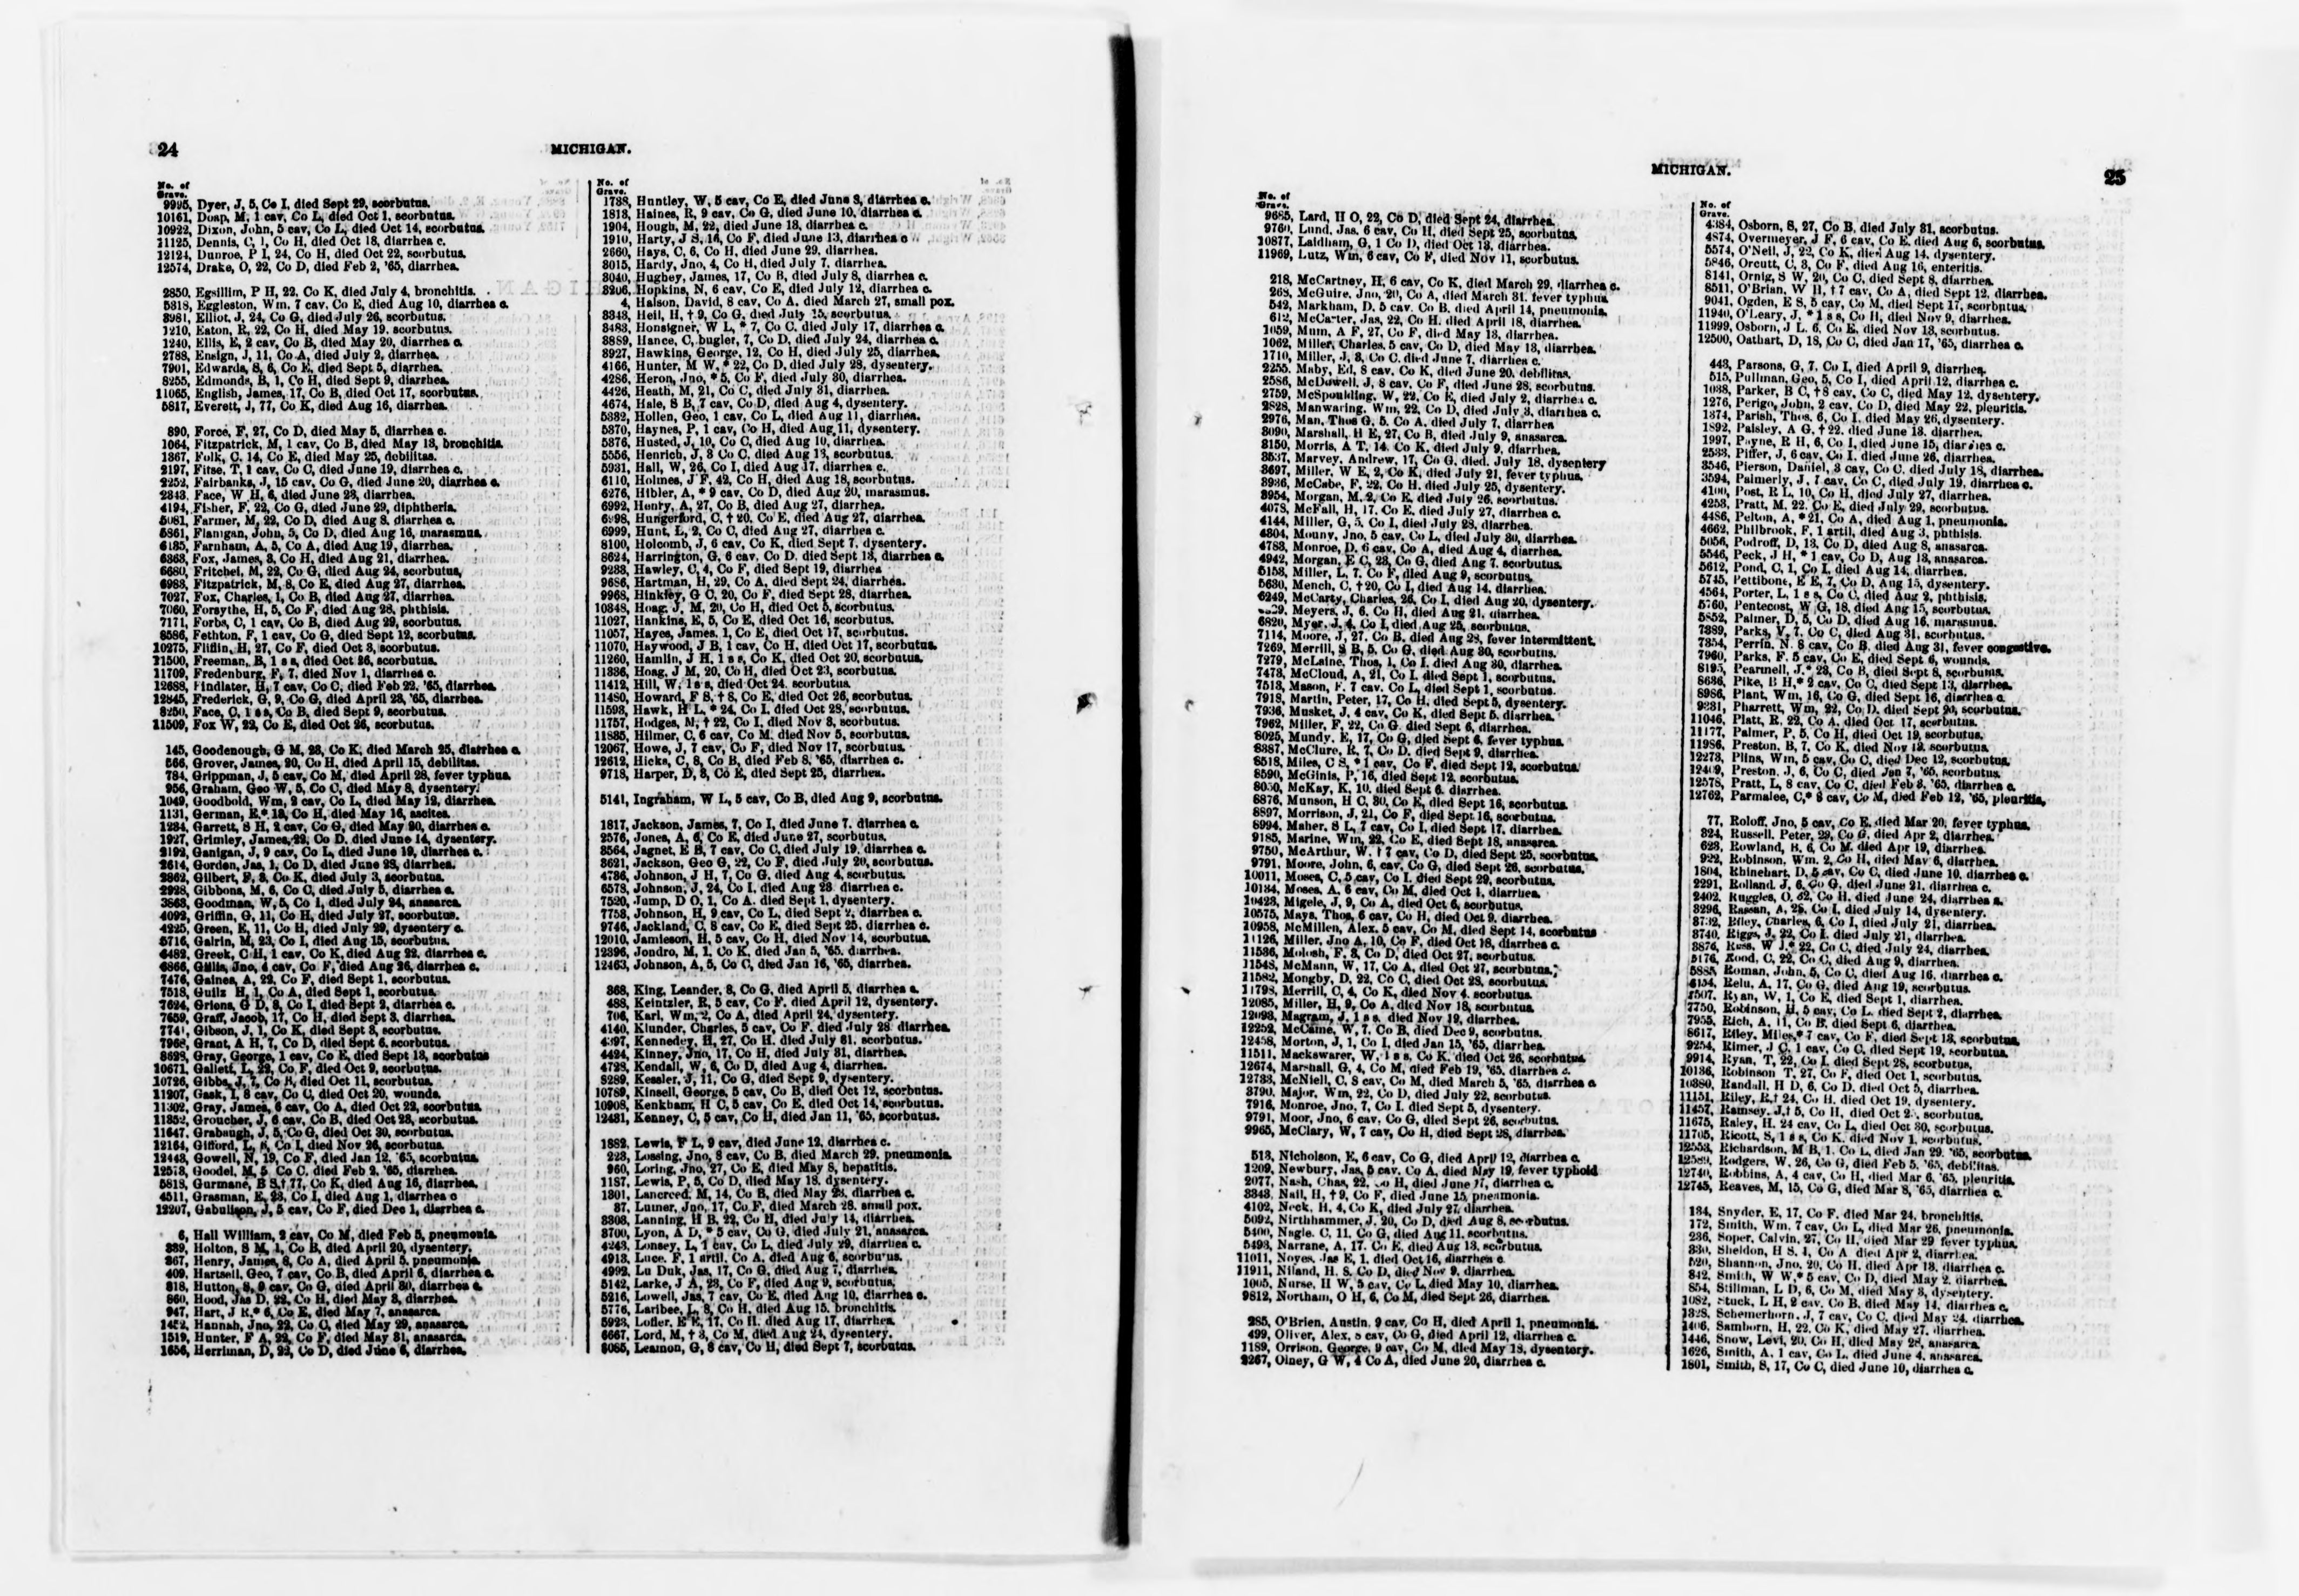 24
MICHIGAN.
No. of
Grave.
9995, Dyer, J, 5, Co I, died Sept 29, scorbutus.
10161, Doap, M, 1 cav, Co L, died Oct 1, scorbutus.
10922, Dixon, John, 5 cav, Co L, died Oct 14, scorbutus.
11125, Dennis, C, 1, Co H, died Oct 18, diarrhea c.
12124, Dunroe, P I, 24, Co H, died Oct 22, scorbutus.
12574, Drake, O, 22, Co D, died Feb 2, '65, diarrhea.
2850, Egsillim, P H, 22, Co K, died July 4, bronchitis.
5318, Eggleston, Wm, 7 cav, Co E, died Aug 10, diarrhea c.
3981, Elliot, J, 24, Co G, died July 26, scorbutus.
1210, Eaton, R, 22, Co H, died May 19, scorbutus.
1240, Ellis, E, 2 cav, Co B, died May 20, diarrhea c.
2788, Ensign, J, 11, Co A, died July 2, diarrhea.
7901, Edwards, S, 6, Co E, died Sept 5, diarrhea.
8255, Edmonds, B, 1, Co H, died Sept 9, diarrhea.
11065, English, James, 17, Co B, died Oct 17, scorbutus.
5817, Everett, J, 77, Co K, died Aug 16, diarrhea.
890, Force, F, 27, Co D, died May 5, diarrhea c.
1064, Fitzpatrick, M, 1 cav, Co B, died May 13, bronchitis.
1367, Folk, C, 14, Co E, died May 25, debilitas.
2197, Fitse, T, 1 cav, Co C, died June 19, diarrhea c.
2252, Fairbanks, J, 15 cav, Co G, died June 20, diarrhea c.
2843, Face, W H, 6, died June 23, diarrhea.
4194, Fisher, F, 22, Co G, died June 29, diphtheria.
5081, Farmer, M, 22, Co D, died Aug 8, diarrhea c.
5861, Flanigan, John, 5, Co D, died Aug 16, marasmus.
6185, Farnham, A, 5, Co A, died Aug 19, diarrhea.
6363, Fox, James, 3, Co H, died Aug 21, diarrhea.
6680, Fritchel, M, 22, Co G, died Aug 24, scorbutus.
6988, Fitzpatrick, M, 8, Co E, died Aug 27, diarrhea.
7027, Fox, Charles, 1, Co B, died Aug 27, diarrhea.
7060, Forsythe, H, 5, Co F, died Aug 28, phthisis.
7171, Forbs, C, 1 cav, Co B, died Aug 29, scorbutus.
8586, Fethton, F, 1 cav, Co G, died Sept 12, scorbutus.
10275, Fliflin, H, 27, Co F, died Oct 3, scorbutus.
11500, Freeman, B, 1 s s, died Oct 26, scorbutus.
11709, Fredenburg, F, 7, died Nov 1, diarrhea c.
12688, Findlater, H, 7 cav, Co C, died Feb 22, '65, diarrhea.
12845, Frederick, G, 9, Co G, died April 23, '65, diarrhea.
8250, Face, C, 1 s s, Co B, died Sept 9, scorbutus.
11509, Fox W, 22, Co E, died Oct 26, scorbutus.
145, Goodenough, G M, 23, Co K, died March 25, diarrhea c.
566, Grover, James, 20, Co H, died April 15, debilitas.
784, Grippman, J, 5 cav, Co M, died April 28, fever typhus.
956, Graham, Geo W, 5, Co C, died May 8, dysentery.
1049, Goodbold, Wm, 2 cav, Co L, died May 12, diarrhea.
1131, German, E,* 13, Co H, died May 16, ascites.
1284, Garrett, S H, 2 cav, Co G, died May 20, diarrhea c.
1927, Grimley, James, 22, Co D, died June 14, dysentery.
2192, Ganigan, J, 9 cav, Co L, died June 19, diarrhea c.
2614, Gorden, Jas, 1, Co D, died June 28, diarrhea.
2862, Gilbert, F, 3, Co K, died July 3, scorbutus.
2928, Gibbons, M, 6, Co C, died July 5, diarrhea c.
3863, Goodman, W, 5, Co I, died July 24, anasarca.
4092, Griffin, G, 11, Co H, died July 27, scorbutus.
4225, Green, E, 11, Co H, died July 29, dysentery c.
5716, Galrin, M, 23, Co I, died Aug 15, scorbutus.
6482, Greek, C H, 1 cav, Co K, died Aug 22, diarrhea c.
6866, Gillis, Jno, 4 cav, Co F, died Aug 26, diarrhea c.
7476, Gaines, A, 22, Co F, died Sept 1, scorbutus.
7518, Guilz H, 1, Co A, died Sept 1, scorbutus.
7624, Griens, G D, 8, Co I, died Sept 2, diarrhea c.
7659, Graff, Jacob, 17, Co H, died Sept 3, diarrhea.
7741, Gibson, J, 1, Co K, died Sept 3, scorbutus.
7968, Grant, A H, 7, Co D, died Sept 6, scorbutus.
8628, Gray, George, 1 cav, Co E, died Sept 13, scorbutus
10671, Gallett, L, 22, Co F, died Oct 9, scorbutus.
10726, Gibbs, J, 7, Co B, died Oct 11, scorbutus.
11207, Gask, I, 8 cav, Co C, died Oct 20, wounds.
11302, Gray, James, 6 cav, Co A, died Oct 22, scorbutus.
11352, Groucher, J, 6 cav, Co B, died Oct 23, scorbutus.
11647, Grabaugh, J, 5, Co G, died Oct 30, scorbutus.
12164, Gifford, L, 8, Co I, died Nov 26, scorbutus.
12443, Gowell, N, 19, Co F, died Jan 12, '65, scorbutus.
12573, Goodel, M, 5, Co C, died Feb 2, '65, diarrhea.
5818, Gurmane, B S,† 77, Co K, died Aug 16, diarrhea.
4511, Grasman, E, 23, Co I, died Aug 1, diarrhea c
12207, Gabulison, J, 5 cav, Co F, died Dec 1, diarrhea c.
6, Hall William, 2 cav, Co M, died Feb 5, pneumonia.
389, Holton, S M, 1, Co B, died April 20, dysentery.
367, Henry, James, 8, Co A, died April 5, pneumonia.
409, Hartsell, Geo, 7 cav, Co B, died April 6, diarrhea c.
818, Hutton, S, 9 cav, Co G, died April 30, diarrhea c.
860, Hood, Jas D, 22, Co H, died May 3, diarrhea.
947, Hart, J R,* 6, Co E, died May 7, anasarca.
1452, Hannah, Jno, 22, Co C, died May 29, anasarca.
1519, Hunter, F A, 22, Co F, died May 31, anasarca.
1656, Herriman, D, 22, Co D, died June 6, diarrhea.
No. of
Grave.
1738, Huntley, W, 5 cav, Co E, died June 8, diarrhea c.
1813, Haines, R, 9 cav, Co G, died June 10, diarrhea c.
1904, Hough, M, 22, died June 13, diarrhea c.
1910, Harty, J S, 14, Co F, died June 13, diarrhea c
2660, Hays, C, 6, Co H, died June 29, diarrhea.
3015, Hardy, Jno, 4, Co H, died July 7, diarrhea.
3040, Hughey, James, 17, Co B, died July 8, diarrhea c.
3206, Hopkins, N, 6 cav, Co E, died July 12, diarrhea c.
4, Halson, David, 8 cav, Co A, died March 27, small pox.
3348, Heil, H, † 9, Co G, died July 15, scorbutus.
3483, Honsigner, W L, * 7, Co C, died July 17, diarrhea c.
3889, Hance, C, bugler, 7, Co D, died July 24, diarrhea c.
3927, Hawkins, George, 12, Co H, died July 25, diarrhea.
4166, Hunter, M W, * 22, Co D, died July 28, dysentery.
4286, Heron, Jno, * 5, Co F, died July 30, diarrhea.
4426, Heath, M, 21, Co C, died July 31, diarrhea.
4674, Hale, S B, 7 cav, Co D, died Aug 4, dysentery.
5332, Hollen, Geo, 1 cav, Co L, died Aug 11, diarrhea.
5370, Haynes, P, 1 cav, Co H, died Aug 11, dysentery.
5376, Husted, J, 10, Co C, died Aug 10, diarrhea.
5556, Henrich, J, 8 Co C, died Aug 13, scorbutus.
5931, Hall, W, 26, Co I, died Aug 17, diarrhea c.
6110, Holmes, J F, 42, Co H, died Aug 18, scorbutus.
6276, Hibler, A, * 9 cav, Co D, died Aug 20, marasmus.
6992, Henry, A, 27, Co B, died Aug 27, diarrhea.
6998, Hungerford, C, † 20, Co E, died Aug 27, diarrhea.
6999, Hunt, L, 2, Co C, died Aug 27, diarrhea c.
8100, Holcomb, J, 6 cav, Co K, died Sept 7, dysentery.
8624, Harrington, G, 6 cav, Co D, died Sept 13, diarrhea c.
9283, Hawley, C, 4, Co F, died Sept 19, diarrhea
9686, Hartman, H, 29, Co A, died Sept 24, diarrhea.
9968, Hinkley, G C, 20, Co F, died Sept 28, diarrhea.
10848, Hoag, J, M, 20, Co H, died Oct 5, scorbutus.
11027, Hankins, E, 5, Co E, died Oct 16, scorbutus.
11057, Hayes, James, 1, Co E, died Oct 17, scorbutus.
11070, Haywood, J B, 1 cav, Co H, died Oct 17, scorbutus.
11260, Hamlin, J H, 1 s s, Co K, died Oct 20, scorbutus.
11336, Hoag, J M, 20, Co H, died Oct 23, scorbutus.
11412, Hill, W, 1 s s, died Oct 24, scorbutus.
11480, Howard, F S, † 8, Co E, died Oct 26, scorbutus.
11593, Hawk, H L, * 24, Co I, died Oct 28, scorbutus.
11757, Hodges, M, † 22, Co I, died Nov 3, scorbutus.
11885, Hilmer, C, 6 cav, Co M, died Nov 5, scorbutus.
12067, Howe, J, 7 cav, Co F, died Nov 17, scorbutus.
12612, Hicks, C, 8, Co B, died Feb 8, '65, diarrhea c.
9718, Harper, D, 8, Co E, died Sept 25, diarrhea.
5141, Ingraham, W L, 5 cav, Co B, died Aug 9, scorbutus.
1817, Jackson, James, 7, Co I, died June 7, diarrhea c.
2576, Jones, A, 6, Co E, died June 27, scorbutus.
3564, Jagnet, E B, 7 cav, Co C, died July 19, diarrhea c.
3621, Jackson, Geo G, 22, Co F, died July 20, scorbutus.
4786, Johnson, J H, 7, Co G, died Aug 4, scorbutus.
6578, Johnson, J, 24, Co I, died Aug 23 diarrhea c.
7520, Jump, D O, 1, Co A, died Sept 1, dysentery.
7758, Johnson, H, 9 cav, Co L, died Sept 2, diarrhea c.
9746, Jackland, C, 8 cav, Co E, died Sept 25, diarrhea c.
12010, Jamieson, H, 5 cav, Co H, died Nov 14, scorbutus.
12396, Jondro, M, 1, Co K, died Jan 5, '65, diarrhea.
12463, Johnson, A, 5, Co C, died Jan 16, '65, diarrhea.
368, King, Leander, 8, Co G, died April 5, diarrhea c.
488, Keintzler, R, 5 cav, Co F, died April 12, dysentery.
706, Karl, Wm, 2, Co A, died April 24, dysentery.
4140, Klunder, Charles, 5 cav, Co F, died July 28 diarrhea.
4397, Kennedey, H, 27, Co H, died July 31, scorbutus.
4424, Kinney, Jno, 17, Co H, died July 31, diarrhea.
4728, Kendall, W, 6, Co D, died Aug 4, diarrhea.
8289, Kessler, J, 11, Co G, died Sept 9, dysentery.
10789, Kinsell, George, 5 cav, Co B, died Oct 12, scorbutus.
10908, Kenkham, H C, 5 cav, Co E, died Oct 14, scorbutus.
12431, Kenney, C, 5 cav, Co H, died Jan 11, '65, scorbutus.
1882, Lewis, F L, 9 cav, died June 12, diarrhea c.
223, Lossing, Jno, 8 cav, Co B, died March 29, pneumonia.
960, Loring, Jno, 27, Co E, died May 8, hepatitis.
1187, Lewis, P, 5, Co D, died May 18, dysentery.
1301, Lancreed, M, 14, Co B, died May 23, diarrhea c.
87, Lumer, Jno, 17, Co F, died March 28, small pox.
3308, Lanning, H B, 22, Co H, died July 14, diarrhea.
3700, Lyon, A D, * 5 cav, Co G, died July 21, anasarca.
4243, Lonsey, L, 1 cav, Co L, died July 29, diarrhea c.
4913, Luce, F, 1 artil, Co A, died Aug 6, scorbutus.
4992, Lu Duk, Jas, 17, Co G, died Aug 7, diarrhea.
5142, Larke, J A, 23, Co F, died Aug 9, scorbutus.
5216, Lowell, Jas, 7 cav, Co E, died Aug 10, diarrhea c.
5776, Laribee, L, 8, Co H, died Aug 15, bronchitis.
5923, Lofler, E E, 17, Co H, died Aug 17, diarrhea.
6667, Lord, M, † 3, Co M, died Aug 24, dysentery.
8065, Leamon, G, 8 cav, Co H, died Sept 7, scorbutus.
MICHIGAN.
25
No. of
Grave.
9685, Lard, H O, 22, Co D, died Sept 24, diarrhea.
9760, Lund, Jas, 6 cav, Co H, died Sept 25, scorbutus.
10877, Laidham, G, 1 Co D, died Oct 13, diarrhea.
11969, Lutz, Wm, 6 cav, Co F, died Nov 11, scorbutus.
218, McCartney, H, 6 cav, Co K, died March 29, diarrhea c.
268, McGuire, Jno, 20, Co A, died March 31, fever typhus
542, Markham, D, 5 cav, Co B, died April 14, pneumonia.
612, McCarter, Jas, 22, Co H, died April 18, diarrhea.
1059, Mum, A F, 27, Co F, died May 13, diarrhea.
1062, Miller, Charles, 5 cav, Co D, died May 13, diarrhea.
1710, Miller, J, 3, Co C, died June 7, diarrhea c.
2255, Maby, Ed, 8 cav, Co K, died June 20, debilitas.
2586, McDowell, J, 8 cav, Co F, died June 28, scorbutus.
2759, McSpoulding, W, 22, Co E, died July 2, diarrhea c.
2828, Manwaring, Wm, 22, Co D, died July 3, diarrhea c.
2976, Man, Thos G, 5, Co A, died July 7, diarrhea
3090, Marshall, H E, 27, Co B, died July 9, anasarca.
3150, Morris, A T, 14, Co K, died July 9, diarrhea.
3537, Marvey, Andrew, 17, Co G, died July 18, dysentery
3697, Miller, W E, 2, Co K, died July 21, fever typhus.
3936, McCabe, F, 22, Co H, died July 25, dysentery.
3954, Morgan, M, 2, Co E, died July 26, scorbutus.
4073, McFall, H, 17, Co E, died July 27, diarrhea c.
4144, Miller, G, 5, Co I, died July 28, diarrhea.
4304, Mouny, Jno, 5 cav, Co L, died July 30, diarrhea.
4783, Monroe, D, 6 cav, Co A, died Aug 4, diarrhea.
4942, Morgan, E C, 23, Co G, died Aug 7, scorbutus.
5153, Miller, L, 7, Co F, died Aug 9, scorbutus.
5630, Mench, C, †20, Co I, died Aug 14, diarrhea.
6249, McCarty, Charles, 26, Co I, died Aug 20, dysentery.
Meyers, J, 6, Co H, died Aug 21, diarrhea.
6820, Myer, J, 4, Co I, died Aug 25, scorbutus.
7114, Moore, J, 27, Co B, died Aug 28, fever intermittent.
7269, Merrill, S B, 5, Co G, died Aug 30, scorbutus.
7279, McLaine, Thos, 1, Co I, died Aug 30, diarrhea.
7473, McCloud, A, 21, Co I, died Sept 1, scorbutus.
7513, Mason, F, 7 cav, Co L, died Sept 1, scorbutus.
7918, Martin, Peter, 17, Co H, died Sept 5, dysentery.
7936, Musket, J, 4 cav, Co K, died Sept 5, diarrhea.
7962, Miller, F, 22, Co G, died Sept 6, diarrhea.
8025, Mundy, E, 17, Co G, died Sept 6, fever typhus.
8387, McClure, R, 7, Co D, died Sept 9, diarrhea.
8518, Miles, C S, * 1 cav, Co F, died Sept 12, scorbutus.
8590, McGinis, P, 16, died Sept 12, scorbutus.
8050, McKay, K, 10, died Sept 6, diarrhea.
8876, Munson, H C, 30, Co E, died Sept 16, scorbutus.
8897, Morrison, J, 21, Co F, died Sept 16, scorbutus.
8994, Maher, S L, 7 cav, Co I, died Sept 17, diarrhea.
9185, Marine, Wm, 22, Co E, died Sept 18, anasarca.
9750, McArthur, W, † 7 cav, Co D, died Sept 25, scorbutus.
9791, Moore, John, 6, cav, Co G, died Sept 26, scorbutus.
10011, Moses, C, 5 cav, Co I, died Sept 29, scorbutus.
10134, Moses, A, 6 cav, Co M, died Oct 1, diarrhea.
10423, Migele, J, 9, Co A, died Oct 6, scorbutus.
10575, Mays, Thos, 6 cav, Co H, died Oct 9, diarrhea.
10958, McMillen, Alex, 5 cav, Co M, died Sept 14, scorbutus
11126, Miller, Jno A, 10, Co F, died Oct 18, diarrhea c.
11536, Molosh, F, 8, Co D, died Oct 27, scorbutus.
11548, McMann, W, 17, Co A, died Oct 27, scorbutus.
11582, Mongby, D, 22, Co C, died Oct 28, scorbutus.
11793, Merrill, C, 4, Co K, died Nov 4, scorbutus.
12085, Miller, H, 9, Co A, died Nov 18, scorbutus.
12093, Magram, J, 1 s s, died Nov 19, diarrhea.
12252, McCame, W, 7, Co B, died Dec 9, scorbutus.
12458, Morton, J, 1, Co I, died Jan 15, '65, diarrhea.
11511, Mackswarer, W, 1 s s, Co K, died Oct 26, scorbutus
12674, Marshall, G, 4, Co M, died Feb 19, '65, diarrhea c.
12733, McNiell, C, 8 cav, Co M, died March 5, '65, diarrhea c
3790, Major, Wm, 22, Co D, died July 22, scorbutus.
7916, Monroe, Jno, 7, Co I, died Sept 5, dysentery.
9791, Moor, Jno, 6 cav, Co G, died Sept 26, scorbutus.
9965, McClary, W, 7 cav, Co H, died Sept 28, diarrhea.
513, Nicholson, E, 6 cav, Co G, died April 12, diarrhea c.
1209, Newbury, Jas, 5 cav, Co A, died May 19, fever typhoid
2077, Nash, Chas, 22, Co H, died June 17, diarrhea c.
3343, Nail, H, † 9, Co F, died June 15, pneumonia.
4102, Neck, H, 4, Co K, died July 27, diarrhea.
5092, Nirthhammer, J, 20, Co D, died Aug 8, scorbutus.
5400, Nagle, C, 11, Co G, died Aug 11, scorbutus.
5493, Narrane, A, 17, Co E, died Aug 13, scorbutus.
11011, Noyes, Jas E, 1, died Oct 16, diarrhea c.
11911, Niland, H, 8, Co D, died Nov 9, diarrhea.
1005, Nurse, H W, 5 cav, Co L, died May 10, diarrhea.
9812, Northam, O H, 6, Co M, died Sept 26, diarrhea.
285, O'Brien, Austin, 9 cav, Co H, died April 1, pneumonia.
499, Oliver, Alex, 8 cav, Co G, died April 12, diarrhea c.
1189, Orrison, George, 9 cav, Co M, died May 18, dysentery.
2267, Olney, G W, 4 Co A, died June 20, diarrhea c.
No. of
Grave.
4384, Osborn, S, 27, Co B, died July 31, scorbutus.
4874, Overmeyer, J F, 6 cav, Co E, died Aug 6, scorbutus.
5574, O'Neil, J, 22, Co K, died Aug 14, dysentery.
5846, Orcutt, C, 3, Co F, died Aug 16, enteritis.
8141, Ornig, S W, 20, Co C, died Sept 8, diarrhea.
8511, O'Brian, W H, † 7 cav, Co A, died Sept 12, diarrhea.
9041, Ogden, E S, 5 cav, Co M, died Sept 17, scorbutus.
11940, O'Leary, J, * 1 s s, Co H, died Nov 9, diarrhea.
11999, Osborn, J L, 6, Co E, died Nov 13, scorbutus.
12500, Oathart, D, 18, Co C, died Jan 17, '65, diarrhea c.
443, Parsons, G, 7, Co I, died April 9, diarrhea.
515, Pullman, Geo, 5, Co I, died April 12, diarrhea c.
1038, Parker, B C, † 8 cav, Co C, died May 12, dysentery.
1276, Perigo, John, 2 cav, Co D, died May 22, pleuritis.
1374, Parish, Thos, 6, Co I, died May 26, dysentery.
1892, Paisley, A G, † 22, died June 13, diarrhea.
1997, Payne, R H, 6, Co I, died June 15, diarrhea c.
2533, Piffer, J, 6 cav, Co I, died June 26, diarrhea.
3546, Pierson, Daniel, 3 cav, Co C, died July 18, diarrhea.
3594, Palmerly, J, 7 cav, Co C, died July 19, diarrhea c.
4100, Post, R L, 10, Co H, died July 27, diarrhea.
4253, Pratt, M, 22, Co E, died July 29, scorbutus.
4486, Pelton, A, * 21, Co A, died Aug 1, pneumonia.
4662, Philbrook, F, 1 artil, died Aug 3, phthisis.
5056, Podroff, D, 13, Co D, died Aug 8, anasarca.
5546, Peck, J H, * 1 cav, Co D, Aug 13, anasarca.
5612, Pond, C, 1, Co I, died Aug 14, diarrhea.
5745, Pettibone, E E, 7, Co D, Aug 15, dysentery.
4564, Porter, L, 1 s s, Co C, died Aug 2, phthisis.
5760, Pentecost, W G, 18, died Aug 15, scorbutus.
5852, Palmer, D, 5, Co D, died Aug 16, marasmus.
7389, Parks, V, 7, Co C, died Aug 31, scorbutus.
7354, Perrin, N, 8 cav, Co B, died Aug 31, fever congestive.
7960, Parks, F, 5 cav, Co E, died Sept 6, wounds.
8195, Pearmell, J,* 23, Co B, died Sept 8, scorbutus.
8636, Pike, B H,* 2 cav, Co C, died Sept 13, diarrhea.
8986, Plant, Wm, 16, Co G, died Sept 16, diarrhea c.
9331, Pharrett, Wm, 22, Co D, died Sept 20, scorbutus.
11046, Platt, R, 22, Co A, died Oct 17, scorbutus.
11177, Palmer, P, 5, Co H, died Oct 19, scorbutus.
11986, Preston, B, 7, Co K, died Nov 13, scorbutus.
12273, Plins, Wm, 5 cav, Co C, died Dec 12, scorbutus.
12409, Preston, J, 6, Co C, died Jan 7, '65, scorbutus.
12578, Pratt, L, 8 cav, Co C, died Feb 3, '65, diarrhea c.
12762, Parmalee, C,* 8 cav, Co M, died Feb 12, '65, pleuritis.
77, Roloff, Jno, 5 cav, Co E, died Mar 20, fever typhus.
324, Russell, Peter, 23, Co G, died Apr 2, diarrhea.
628, Rowland, B, 6, Co M, died Apr 19, diarrhea.
922, Robinson, Wm, 2, Co H, died May 6, diarrhea.
1804, Rhinehart, D, 5 cav, Co C, died June 10, diarrhea c.
2291, Rolland, J, 6, Co G, died June 21, diarrhea c.
2402, Ruggles, O, 22, Co H, died June 24, diarrhea c.
3296, Rassan, A, 25, Co I, died July 14, dysentery.
3732, Riley, Charles, 6, Co I, died July 21, diarrhea.
3740, Riggs, J, 22, Co I, died July 21, diarrhea.
3876, Russ, W J,* 22, Co C, died July 24, diarrhea.
5176, Rood, C, 22, Co C, died Aug 9, diarrhea.
5885, Roman, John, 5, Co C, died Aug 16, diarrhea c.
6154, Relu, A, 17, Co G, died Aug 19, scorbutus.
7507, Ryan, W, 1, Co E, died Sept 1, diarrhea.
7750, Robinson, H, 5 cav, Co L, died Sept 2, diarrhea.
7955, Rich, A, 11, Co B, died Sept 6, diarrhea.
8617, Riley, Miles,* 7 cav, Co F, died Sept 13, scorbutus.
9254, Rimer, J C, 1 cav, Co C, died Sept 19, scorbutus.
9914, Ryan, T, 22, Co I, died Sept 28, scorbutus.
10136, Robinson T, 27, Co F, died Oct 1, scorbutus.
10380, Randall, H D, 6, Co D, died Oct 5, diarrhea.
11151, Riley, R,† 24, Co H, died Oct 19, dysentery.
11457, Ramsey, J,† 5, Co H, died Oct scorbutus.
11675, Raley, H, 24 cav, Co L, died Oct 30, scorbutus.
11705, Ricott, S, 1 s s, Co K, died Nov 1, scorbutus.
12553, Richardson, M B, 1, Co L, died Jan 29, '65, scorbutus.
12589, Rodgers, W, 26, Co G, died Feb 5, '65, debilitas.
12740, Robbins, A, 4 cav, Co H, died Mar 6, '65, pleuritis.
12745, Reaves, M, 15, Co G, died Mar 8, '65, diarrhea c.
134, Snyder, E, 17, Co F, died Mar 24, bronchitis.
172, Smith, Wm, 7 cav, Co L, died Mar 26, pneumonia.
236, Soper, Calvin, 27, Co H, died Mar 29 fever typhus.
330, Sheldon, H S, 1, Co A died Apr 2, diarrhea.
520, Shannon, Jno, 20, Co H, died Apr 13, diarrhea c.
842, Smith, W W,* 5 cav, Co D, died May 2, diarrhea.
854, Stillman, L D, 6, Co M, died May 3, dysentery.
1082, Stuck, L H, 2 cav, Co B, died May 14, diarrhea c.
1328, Schemerhorn, J, 7 cav, Co C, died May 24, diarrhea.
1406, Samborn, H, 22, Co K, died May 27, diarrhea.
1446, Snow, Levi, 20, Co H, died May 28, anasarca.
1626, Smith, A, 1 cav, Co L, died June 4, anasarca.
1801, Smith, S, 17, Co C, died June 10, diarrhea c.